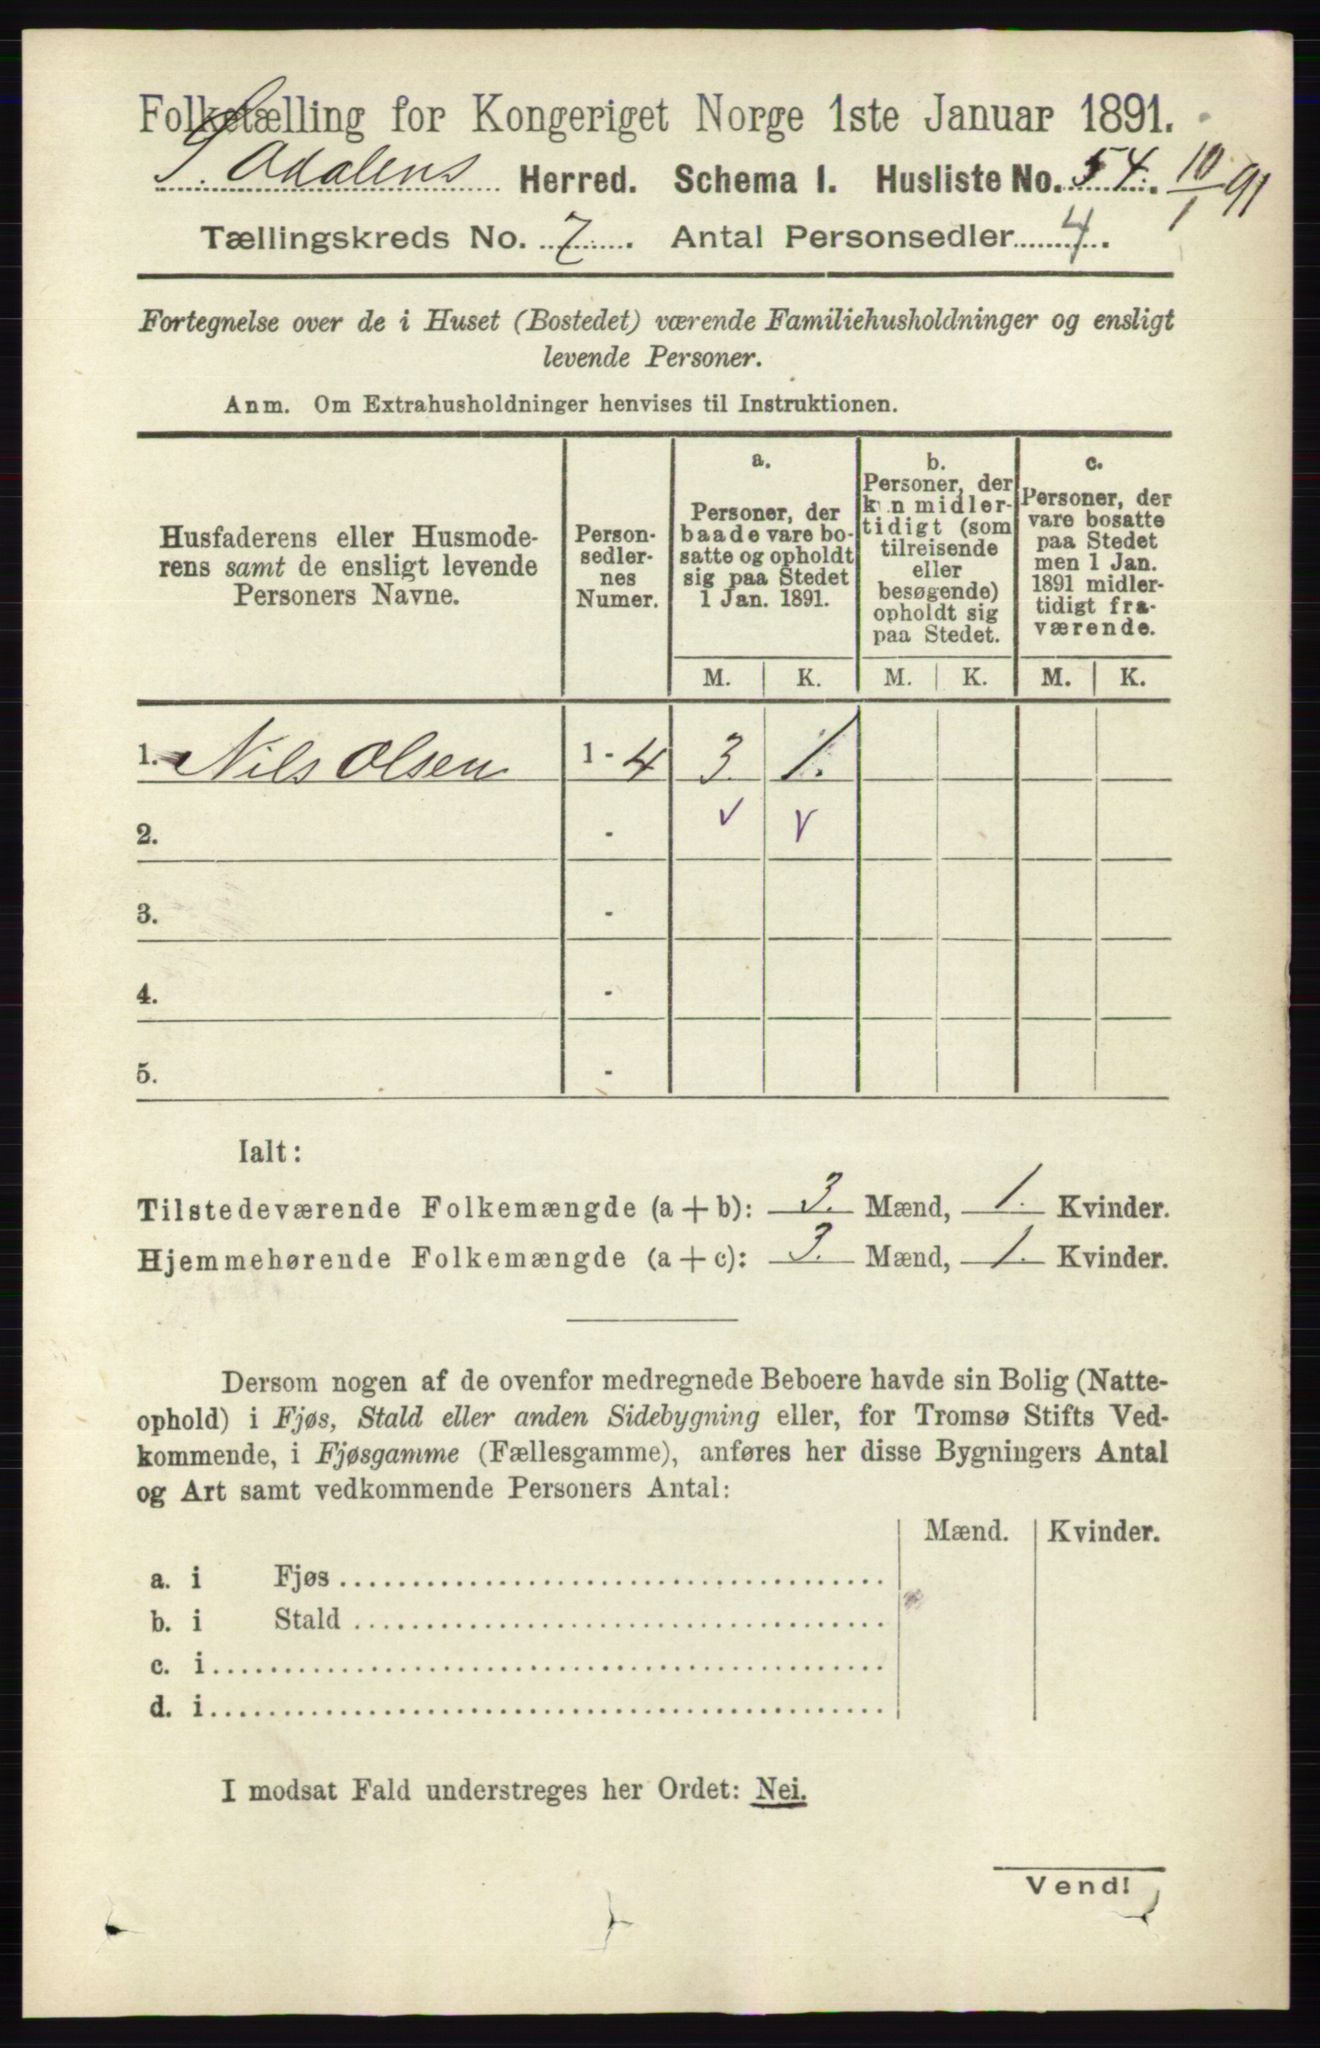 Folketælling for Kongeriget Norge 1ste Januar 1891.
S. Odalens Herred. Schema I. Husliste No. 54. 10/1 91
Tællingskreds No. 7. Antal Personsedler 4.
Fortegnelse over de i Huset (Bostedet) værende Familiehusholdninger og ensligt
levende Personer.
Anm. Om Extrahusholdninger henvises til Instruktionen.
Husfaderens eller Husmode-
rens samt de ensligt levende
Personers Navne.
Person-
sedler-
nes
Numer.
a.
Personer, der
baade vare bo-
satte og opholdt
sig paa Stedet
1 Jan. 1891.
b.
Personer, der
kun midler-
tidigt (som
tilreisende
eller
besøgende)
opholdt sig
paa Stedet.
c.
Personer, der
vare bosatte
paa Stedet
men 1 Jan.
1891 midler-
tidigt fra-
værende.
M. K. M. K. M. K.
1. Nils Olsen 1 - 4 3. 1.
2. - ✓ ✓
3. -
4. -
5. -
Ialt:
Tilstedeværende Folkemængde (a + b): 3. Mænd, 1. Kvinder.
Hjemmehørende Folkemængde (a + c): 3. Mænd, 1. Kvinder.
Dersom nogen af de ovenfor medregnede Beboere havde sin Bolig (Natte-
ophold) i Fjøs, Stald eller anden Sidebygning eller, for Tromsø Stifts Ved-
kommende, i Fjøsgamme (Fællesgamme), anføres her disse Bygningers Antal
og Art samt vedkommende Personers Antal:
Mænd. Kvinder.
a. i Fjøs
b. i Stald
c. i
d. i
I modsat Fald understreges her Ordet: Nei.
Vend!